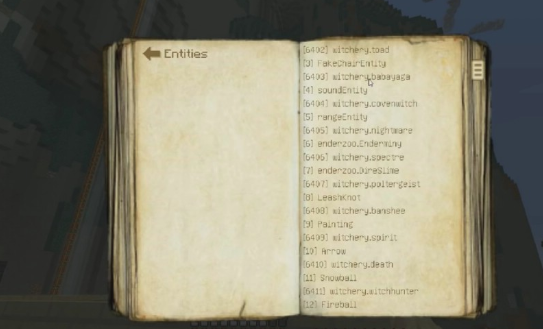 Entities
[6402] witchery.toad
[3] FakeChairEntity
[6403] witchery.babayaga
[4] soundEntity
[6404] witchery.covenwitch
[5] rangeEntity
[6405] witchery.nightmare
[6] enderzoo.Enderminy
[6406] witchery.spectre
[7] enderzoo.DireSlime
[6407] witchery.poltergeist
[8] LeashKnot
[6408] witchery.banshee
[9] Painting
[6409] witchery.spirit
[10] Arrow
[6410] witchery.death
[11] Snowball
[6411] witchery.witchhunter
[12] Fireball